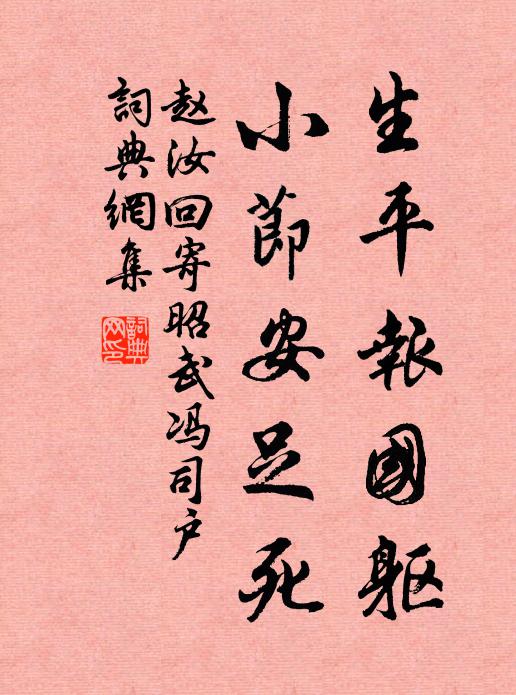 生平報國躯
小節安足死
赵汝回寄昭武冯司户
詞典網集
詞典
网印